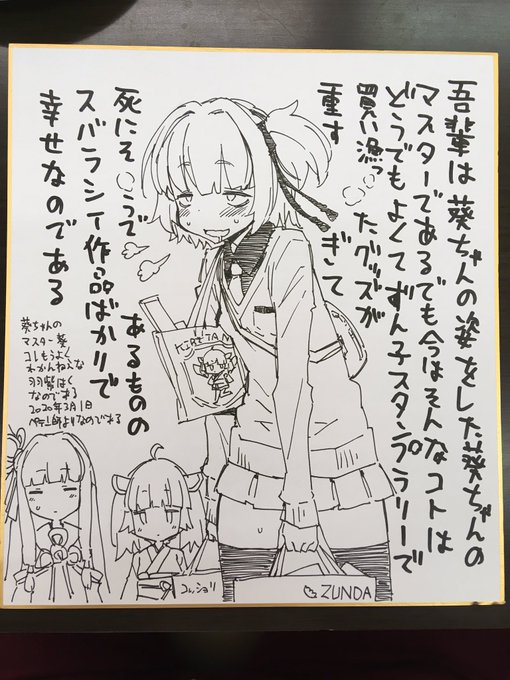 吾輩は葵ちゃんの姿をした葵ちゃんの
マスターであるでも今はそんなコトは
どうでもよくてずん子スタンプラリーで
買い漁ったグッズが
重すぎて
死にそうであるものの
スバラシイ作品ばかりで
幸せなのである
KIRITAN
葵ちゃんの
マスター葵
コレもうよく
わかんねえな
なのである
2020年3月1日
よりなのである
ZUNDA